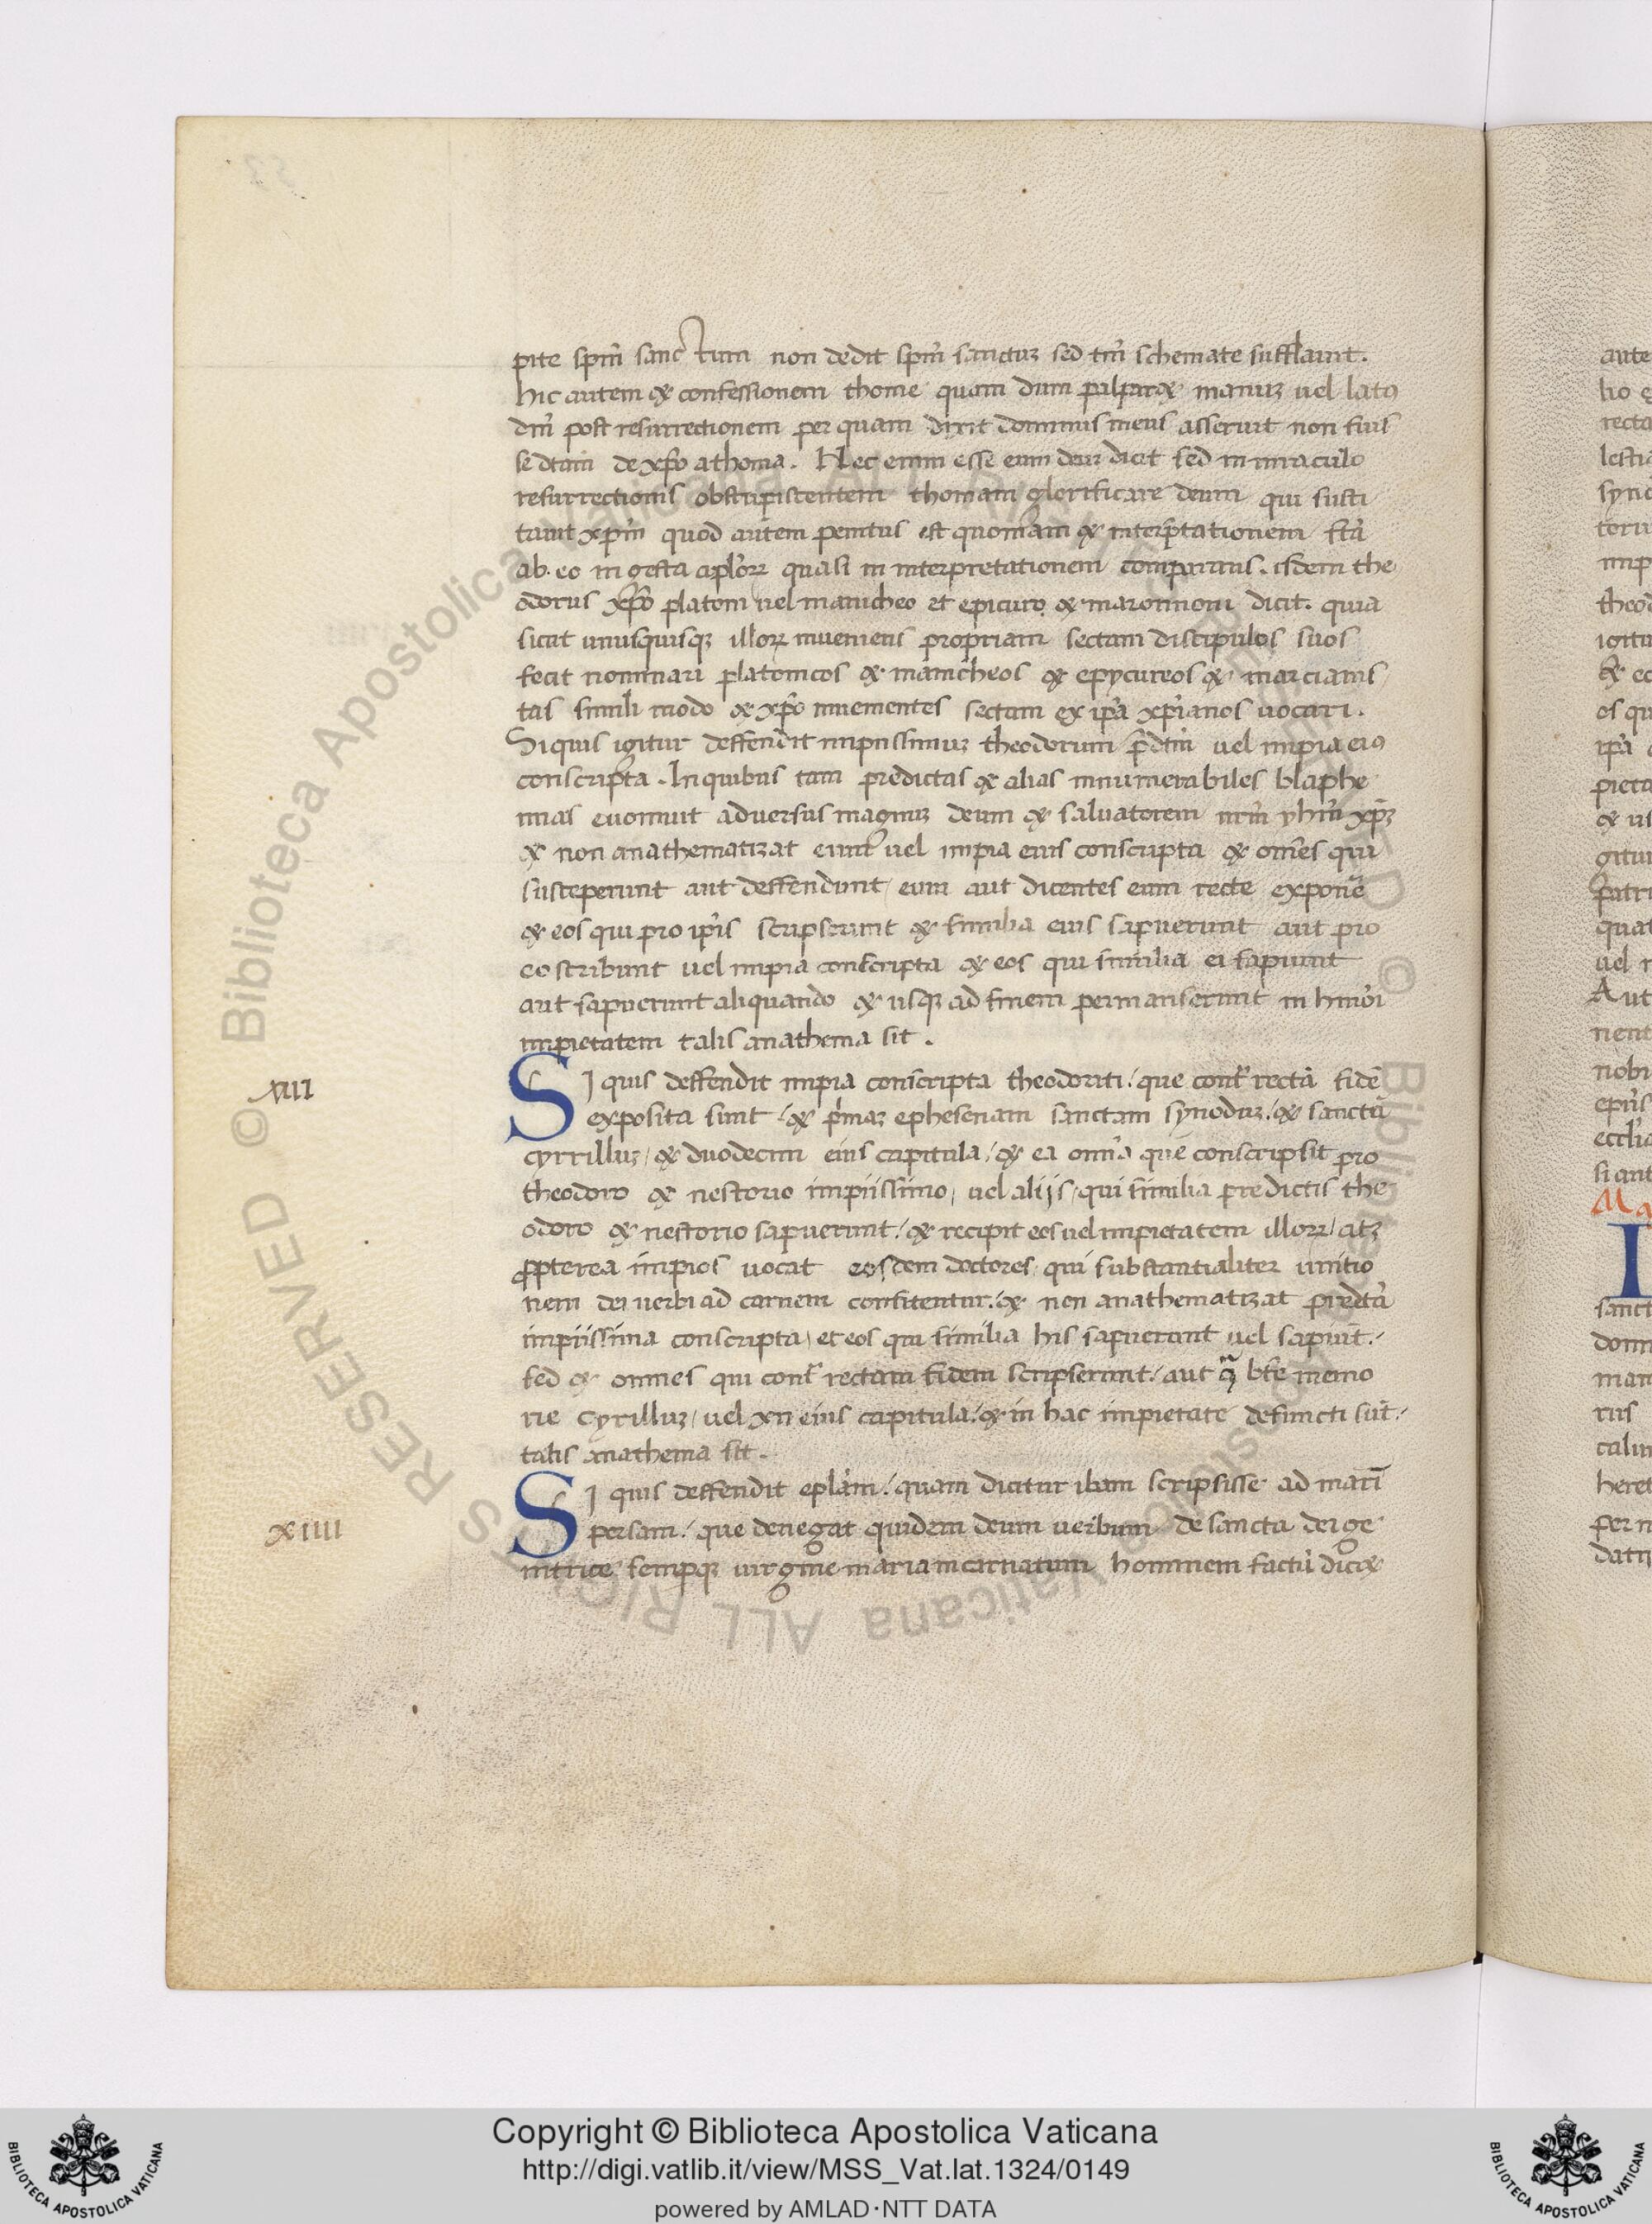 pite spm̄ sanctum non dedit spm̄ sanctuꝫ sed tm̄ schemate sufflauit.
hic autem & confessionem thome quam dum palparet manuꝫ uel latꝰ
dm̄ post resurrectionem per quam dixit dominus meus asseruit non fuis
se dictam de xp̄o a thoma. Nec enim esse eum deuꝫ dicit sed in miraculo
resurrectionis obstupiscentem thomam glorificare deum qui susci
tauit xp̄m quod autem penitus est quoniam & interp̄tationem ftā
ab eo in gesta apl̄oꝝ quasi in interpretationem comparans. isdem the
odorus xp̄o platoni uel manicheo et epicuro & maronnoni dicit. quia
sicut unusquisqꝫ illoꝝ inueniens propriam sectam discipulos suos
fecit nominari platonicos & manicheos & epycureos & marcianis
tas simili modo & xp̄o inuenientes sectam ex ip̄a xp̄ianos uocari.
Siquis igitur deffendit impiissimuꝫ theodorum p̄dtm̄ uel impia eiꝰ
conscripta. In quibus tam predictas & alias innumerabiles blasphe
mias euomuit aduersus magnuꝫ deum & saluatorem nrm̄ yhm̄ xp̄ꝫ
& non anathematizat eum uel impia eius conscripta & om̄es qui
susceperunt aut deffendunt eum aut dicentes eum recte exponē
& eos qui pro ip̄is scripserunt & similia eius sapuerunt aut pro
eo scribunt uel impia conscripta & eos qui similia ei sapiunt
aut sapuerunt aliquando & usqꝫ ad finem permanserunt in hmōi
impietatem talis anathema sit.
XIII
Si quis deffendit impia conscripta theodoriti. que cont̄ rectā fidē
exposita sunt. & p̄maꝫ ephesenam sanctam synoduꝫ. & sanctū
cyrilluꝫ, & duodecim eius capitula, & ea omīa que conscripsit pro
theodoro & nestorio impiissimo, uel alijs, qui similia predictis the
odoro & nestorio sapuerunt. & recipit eos uel impietatem illoꝝ, atꝫ
ꝓpterea impios uocat eosdem doctores, qui substantialiter unitio
nem dei uerbi ad carnem confitentur. & non anathematizat predctā
impiissima conscripta, et eos qui similia his sapuerunt uel sapiūt.
sed & omnes qui cont̄ rectam fidem scripserunt. aut qͣ btē memo
rie Cyrilluꝫ, uel xii eius capitula. & in hac impietate defuncti sūt.
talis anathema sit.
XIIII
Si quis deffendit epl̄am. quam dicitur ibam scripsisse ad marī
persam. que denegat quidem deum uerbum de sancta dei ge
nitrice sempqꝫ uirgine maria incarnatum hominem factū dicit
Copyright © Biblioteca Apostolica Vaticana
http://digi.vatlib.it/view/MSS_Vat.lat.1324/0149
powered by AMLAD·NTT DATA